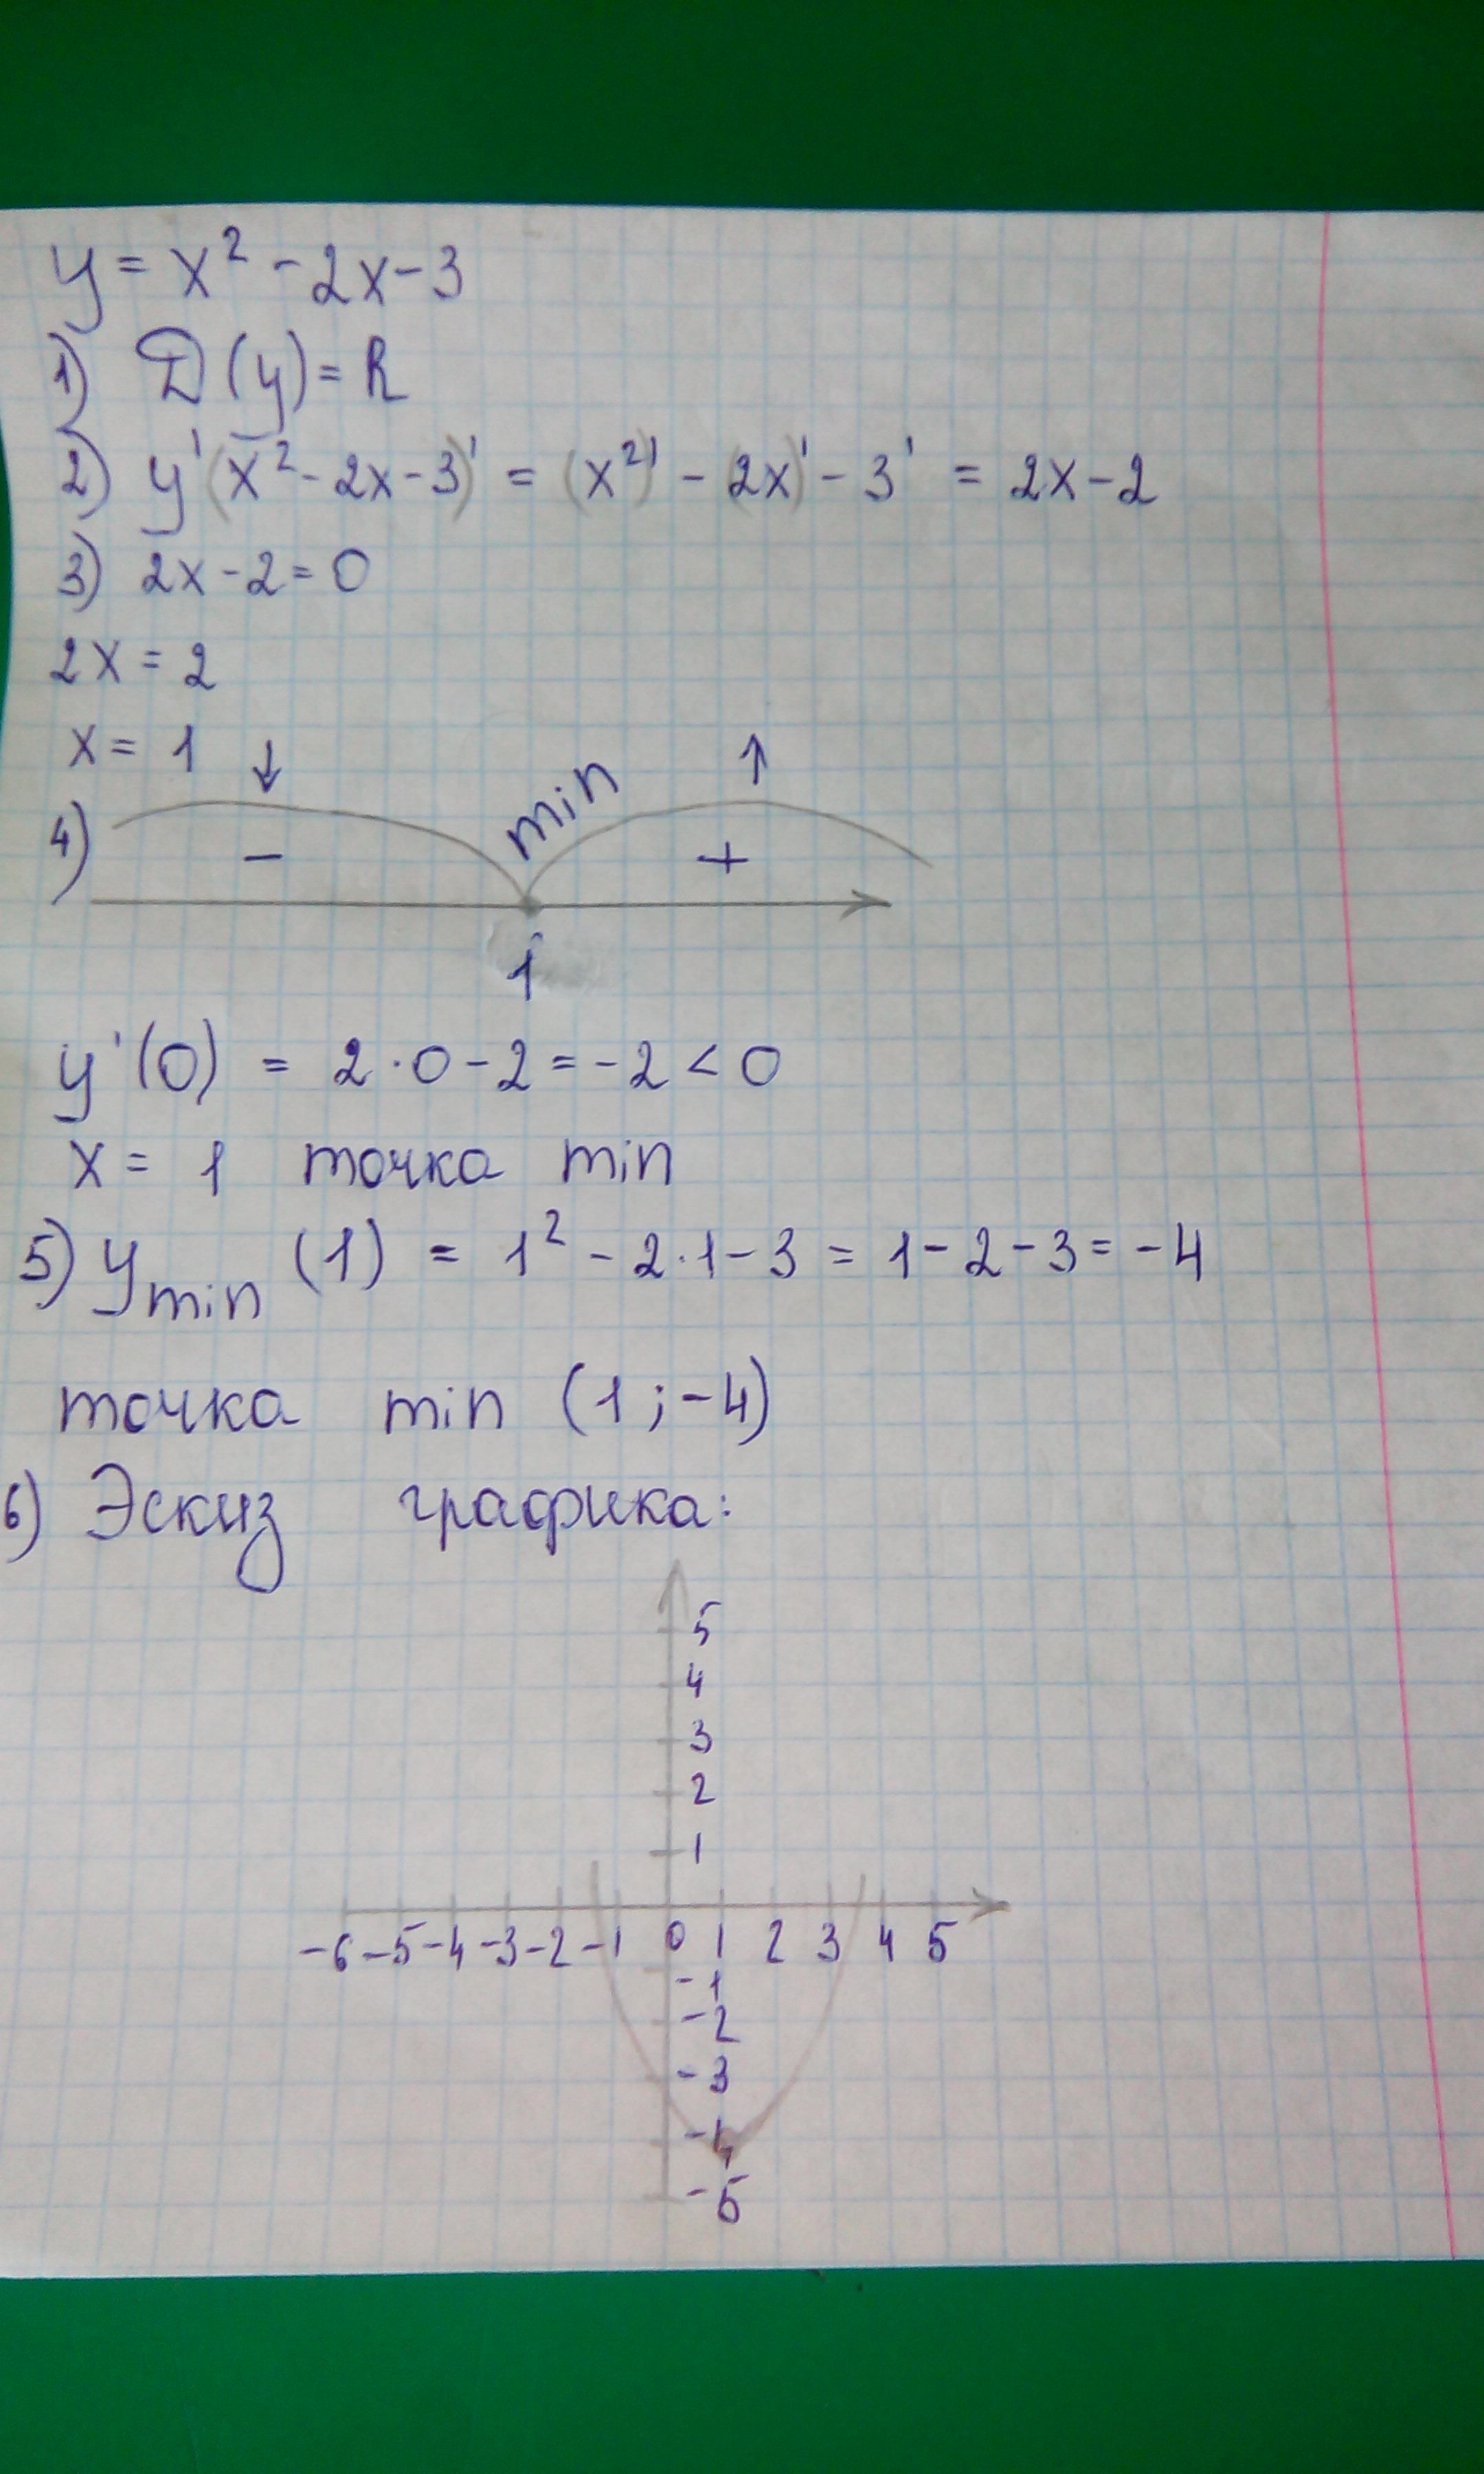 y = x² - 2x - 3
1) D(y) = R
2) y'(x² - 2x - 3)' = (x²)' - (2x)' - 3' = 2x - 2
3) 2x - 2 = 0
2x = 2
x = 1
↓ min ↑
4) - +
1
y'(0) = 2·0 - 2 = -2 < 0
x = 1 точка min
5) y min (1) = 1² - 2·1 - 3 = 1 - 2 - 3 = -4
точка min (1; -4)
6) Эскиз графика:
5
4
3
2
1
-6 -5 -4 -3 -2 -1 0 1 2 3 4 5
-1
-2
-3
-4
-5